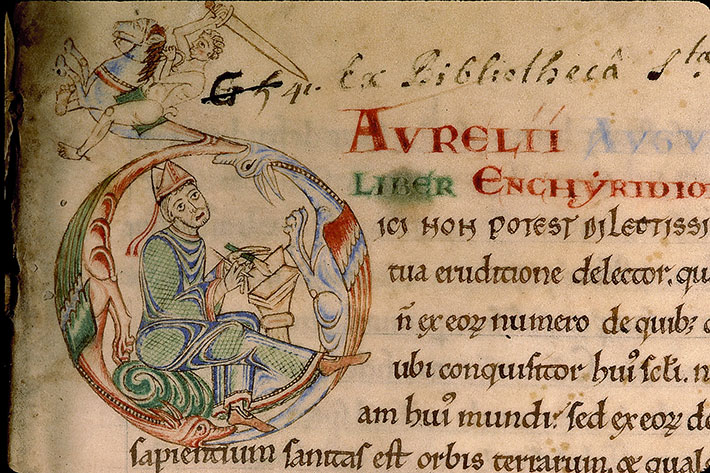 Ex Bibliothecâ Sta
AVRELII AVGV
LIBER ENCHYRIDIO
ICI NON POTEST DILECTISSI
tua eruditione delector. qua
n̄ ex eoꝝ numero de quib; d
ubi conquisitor hui' scl̄i. n
am hui' mundi; sed ex eoꝝ de
sapientium sanitas est orbis terrarum. & quale